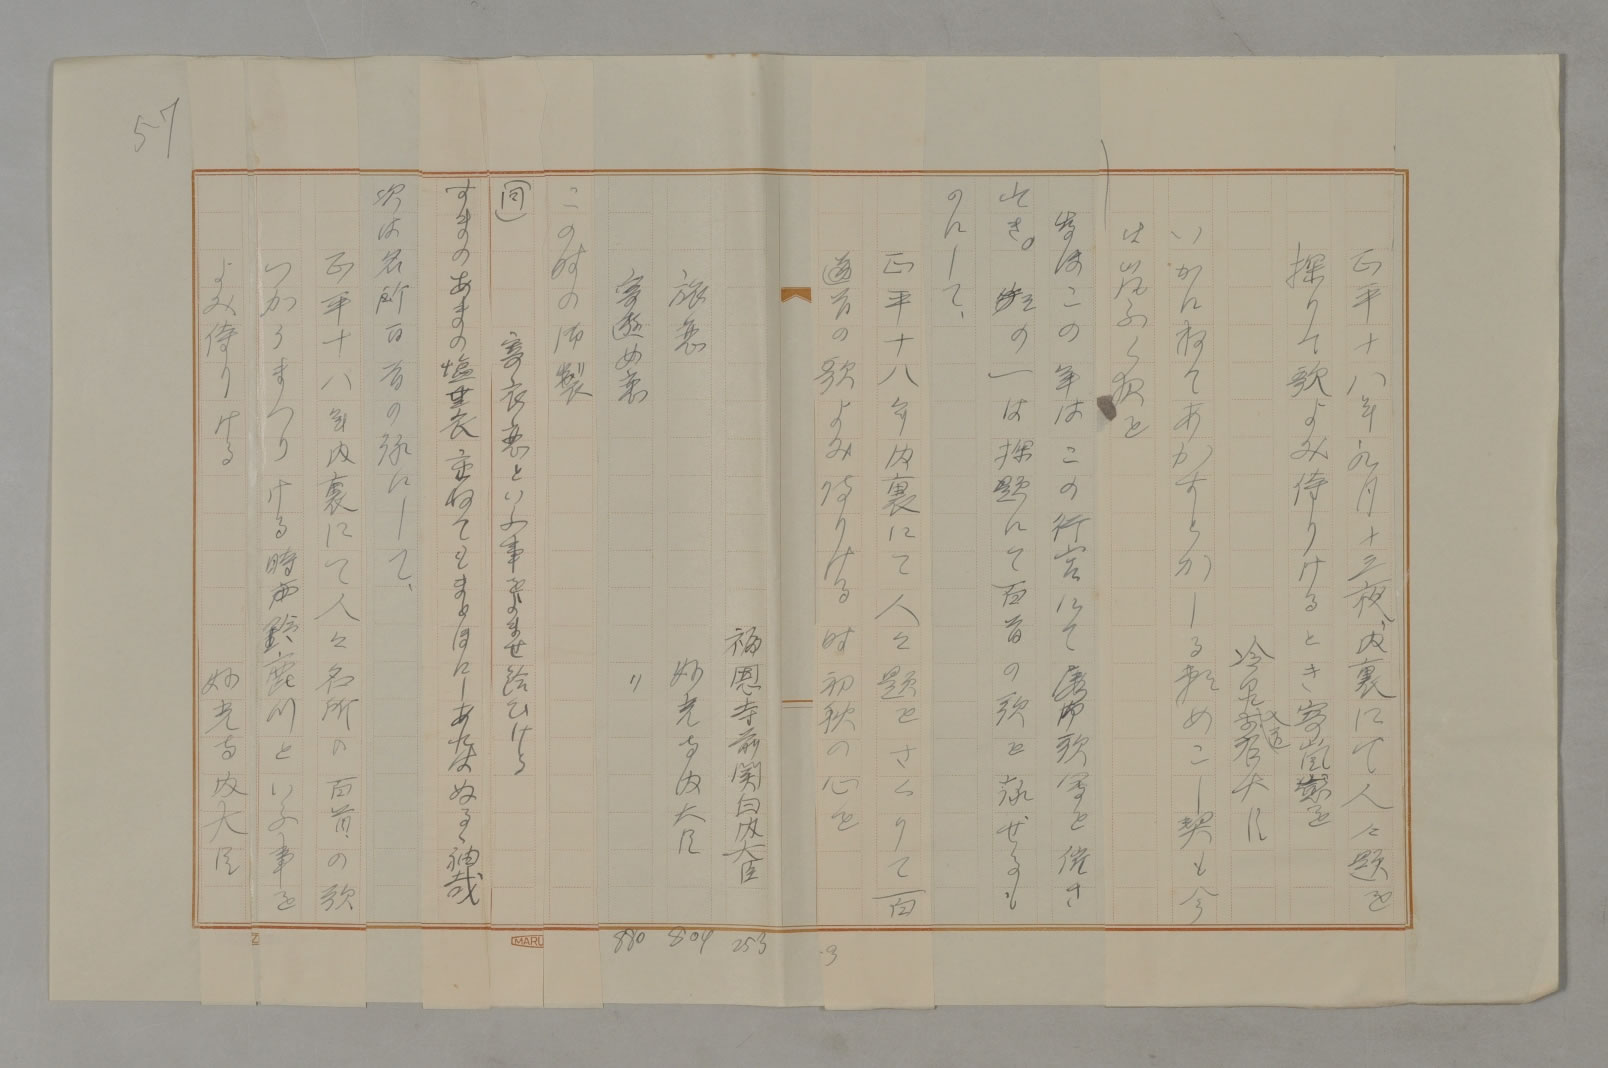 57
正平十八年九月十三夜内裏にて人々題を
探りて歌よみ侍りけるとき寄嵐恋を
冷泉入道前右大臣
いかにねてあかすとかしる頼めこし契も今
は嵐ふく夜を
歌はこの年はこの行宮にて屡御歌会を催さ
れき。その一は探題にて百首の歌を詠ぜるも
のにして、
正平十八年内裏にて人々題をさくりて百
首の歌よみ侍りける時初秋の心を
福恩寺前関白内大臣 253
旅恋 妙光寺内大臣 804
寄遊女恋 〃 880
この時の御製
(同) 寄衣恋といふ事をよませ給ひける
すまのあまの塩焼衣重ねてもまとほにしあれはぬるゝ袖哉
次は名所百首の歌にして、
正平十八年内裏にて人々名所の百首の歌
つかうまつりける時鈴鹿川といふ事を
よみ侍りける 妙光寺内大臣
MARU